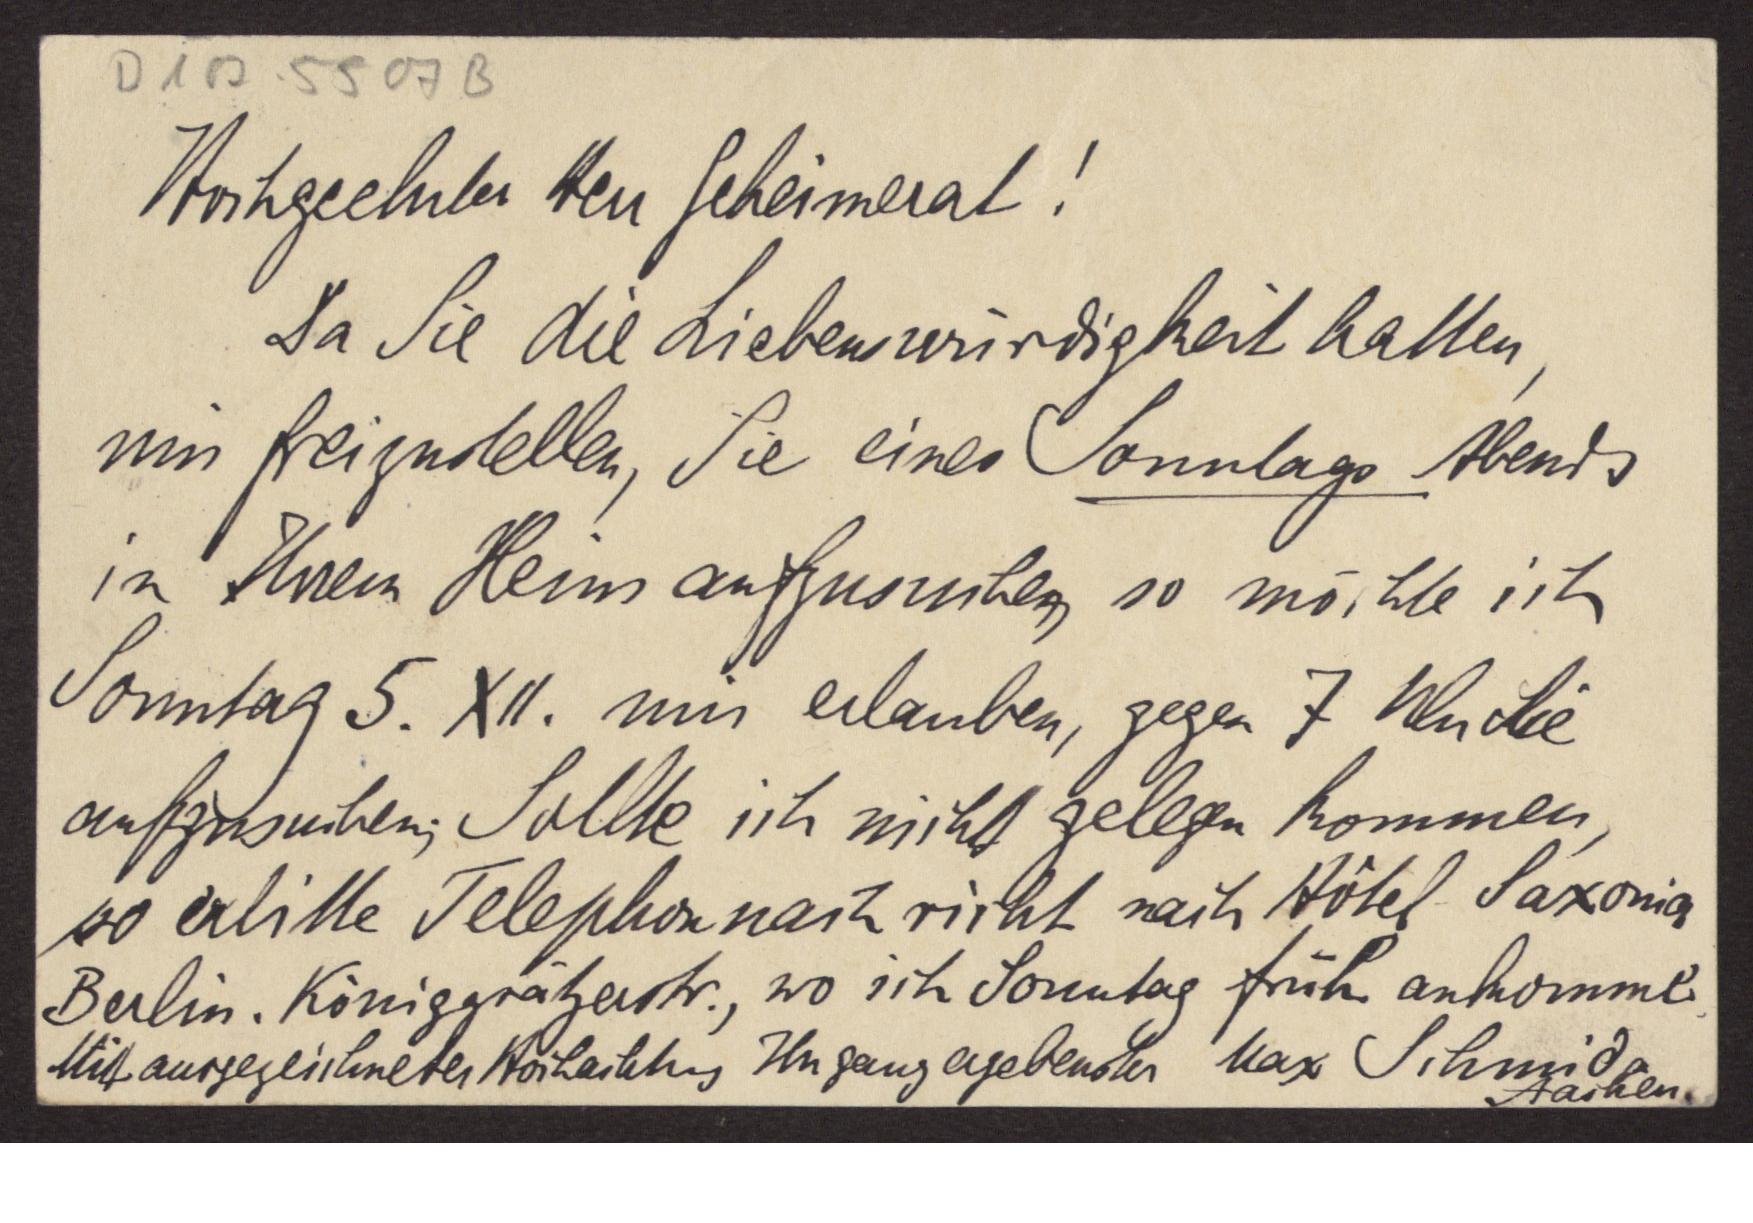 D 102.5507 B
Hochgeehrter Herr Geheimerat!
Da Sie die Liebenswürdigkeit hatten,
mir freizustellen, Sie eines Sonntags Abends
in Ihrem Heim aufzusuchen, so möchte ich
Sonntag 5. XII. mir erlauben, gegen 7 Uhr Sie
aufzusuchen; Sollte ich nicht gelegen kommen,
so erbitte Telephonnachricht nach Hôtel Saxonia
Berlin. Königgrätzerstr., wo ich Sonntag früh ankomme.
Mit ausgezeichneter Hochachtung Ihr ganz ergebenster Max Schmid
Aachen.